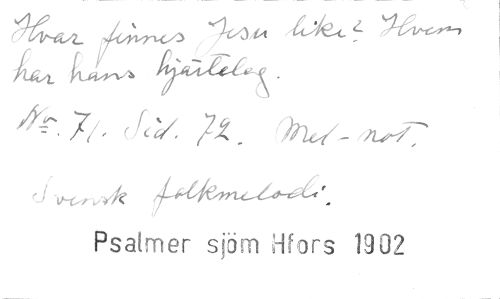 Hvar finnes Jesu like? Hvem
har hans hjärtelag.
No. 71. Sid. 72. Mel-not.
Svensk folkmelodi.
Psalmer sjöm Hfors 1902